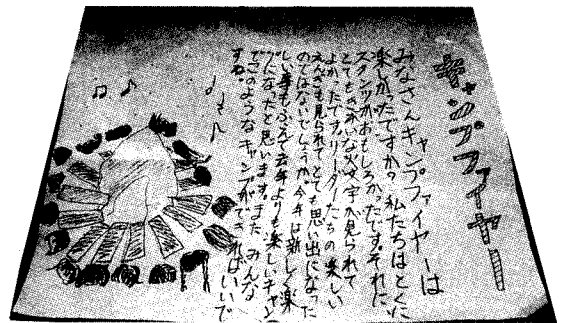 キャンプファイヤー
みなさんキャンプファイヤーは
楽しかったですか？私たちはとくに
スタンツがおもしろかったです。それに
とてもきれいな火文字が見られて
よかったです。リーダーたちの楽しい
えんぎも見られてとても思い出になった
のではないでしょうか。今年は新しく楽
しい事もふえて去年よりも楽しいキャン
プになったと思います。また みんな
でこのようなキャンプができればいいで
すね。